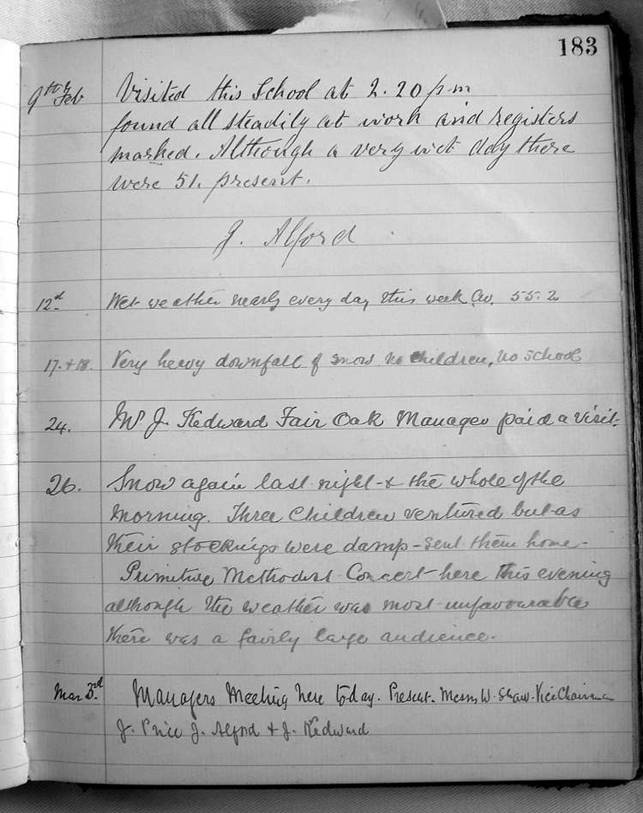 183
9th Feb Visited this School at 2.20 p.m
found all steadily at work and registers
marked. Although a very wet day there
were 51. present.
J. Alford
12th. Wet weather nearly every day this week Av. 55.2
17. + 18. Very heavy downfall of snow no children, no school
24. Mr J. Kedward Fair Oak Manager paid a visit.
26. Snow again last night & the whole of the
morning. Three children ventured but as
their stockings were damp - sent them home -
Primitive Methodist Concert here this evening
although the weather was most unfavourable
there was a fairly large audience.
Mar 3rd. Managers Meeting here today. Present. Messrs W. Shaw. Vice Chairman
J. Price J. Alford & J. Kedward